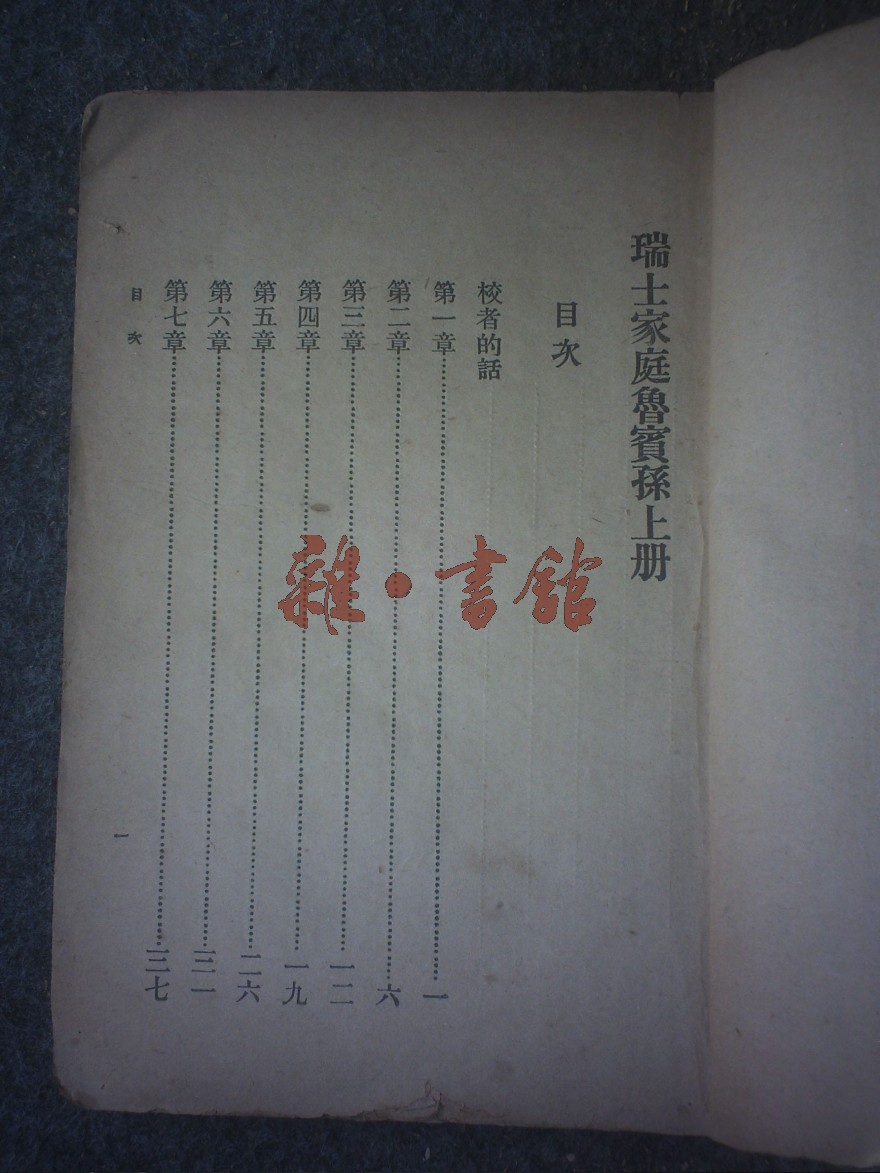 瑞士家庭魯賓孫上册
目次
校者的話
第一章……………………一
第二章……………………六
第三章……………………一二
第四章……………………一九
第五章……………………二六
第六章……………………三一
第七章……………………三七
目次
一
雜·書館